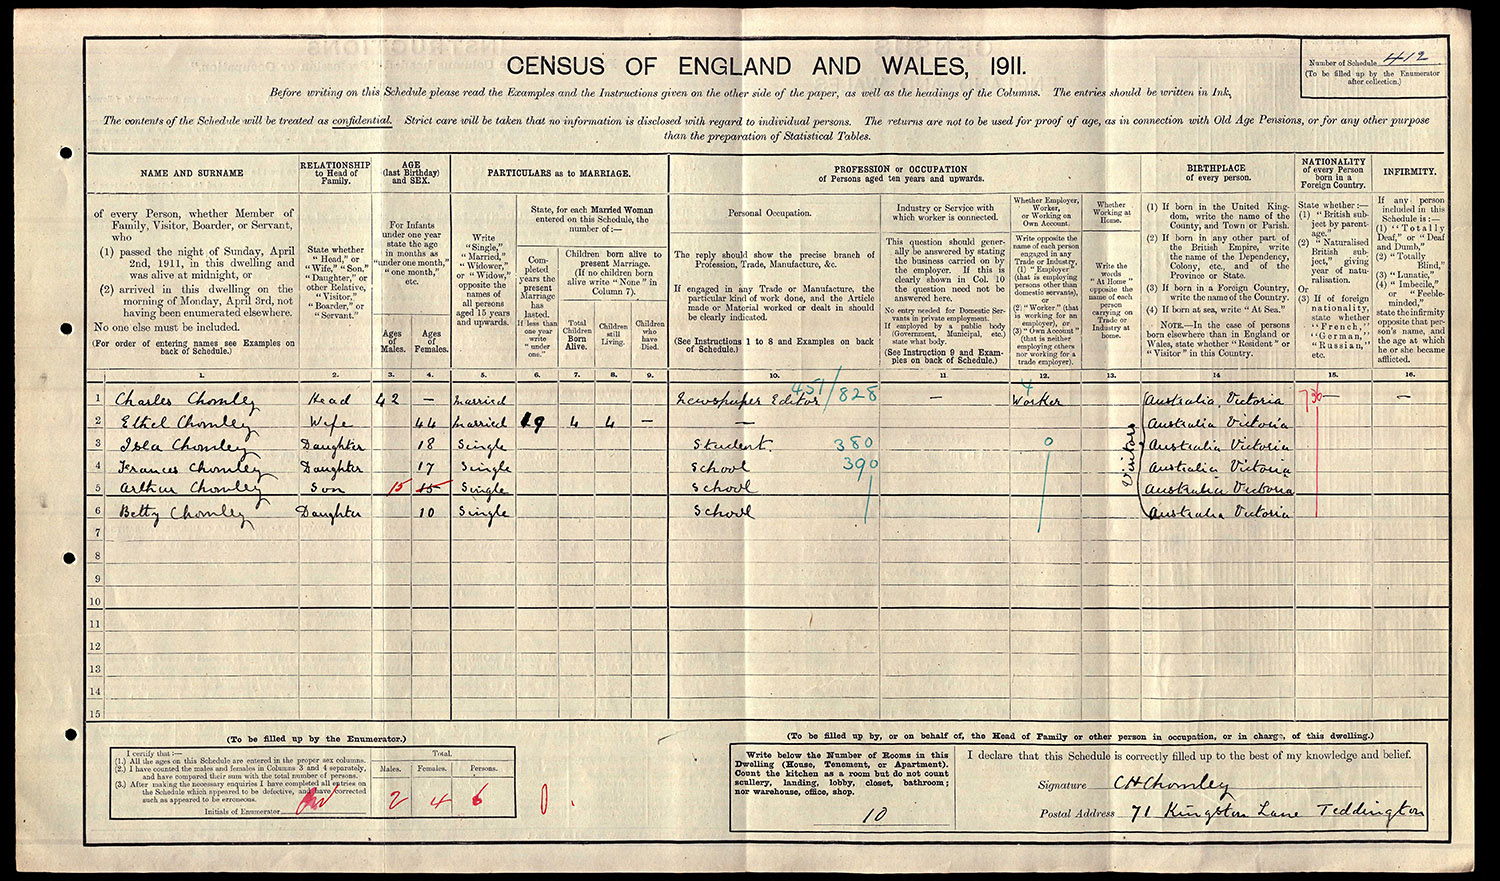 CENSUS OF ENGLAND AND WALES, 1911.
Number of Schedule 412
(To be filled up by the Enumerator
after collection.)
Before writing on this Schedule please read the Examples and the Instructions given on the other side of the paper, as well as the headings of the Columns. The entries should be written in Ink.
The contents of the Schedule will be treated as confidential. Strict care will be taken that no information is disclosed with regard to individual persons. The returns are not to be used for proof of age, as in connection with Old Age Pensions, or for any other purpose
than the preparation of Statistical Tables.
NAME AND SURNAME
of every Person, whether Member of
Family, Visitor, Boarder, or Servant,
who
(1) passed the night of Sunday, April
2nd, 1911, in this dwelling and
was alive at midnight, or
(2) arrived in this dwelling on the
morning of Monday, April 3rd, not
having been enumerated elsewhere.
No one else must be included.
(For order of entering names see Examples on
back of Schedule.)
RELATIONSHIP
to Head of
Family.
State whether
"Head," or
"Wife," "Son,"
"Daughter," or
other Relative,
"Visitor,"
"Boarder," or
"Servant."
AGE
(last Birthday)
and SEX.
For Infants
under one year
state the age
in months as
"under one month,"
"one month,"
etc.
Ages
of
Males.
Ages
of
Females.
PARTICULARS as to MARRIAGE.
Write
"Single,"
"Married,"
"Widower,"
or "Widow,"
opposite the
names of
all persons
aged 15 years
and upwards.
State, for each Married Woman
entered on this Schedule, the
number of:—
Com-
pleted
years the
present
Marriage
has
lasted.
If less than
one year
write
"under
one."
Children born alive to
present Marriage.
(If no children born
alive write "None" in
Column 7).
Total
Children
Born
Alive.
Children
still
Living.
Children
who
have
Died.
PROFESSION or OCCUPATION
of Persons aged ten years and upwards.
Personal Occupation.
The reply should show the precise branch of
Profession, Trade, Manufacture, &c.
If engaged in any Trade or Manufacture, the
particular kind of work done, and the Article
made or Material worked or dealt in should
be clearly indicated.
(See Instructions 1 to 8 and Examples on back
of Schedule.)
Industry or Service with
which worker is connected.
This question should gener-
ally be answered by stating
the business carried on by
the employer. If this is
clearly shown in Col. 10
the question need not be
answered here.
No entry needed for Domestic Ser-
vants in private employment.
If employed by a public body
(Government, Municipal, etc.)
state what body.
(See Instruction 9 and Exam-
ples on back of Schedule.)
Whether Employer,
Worker,
or Working on
Own Account.
Write opposite the
name of each person
engaged in any
Trade or Industry,
(1) "Employer"
(that is employing
persons other than
domestic servants),
or
(2) "Worker" (that
is working for an
employer), or
(3) "Own Account"
(that is neither
employing others
nor working for a
trade employer).
Whether
Working at
Home.
Write the
words
"At Home"
opposite the
name of each
person
carrying on
Trade or
Industry at
home.
BIRTHPLACE
of every person.
(1) If born in the United King-
dom, write the name of the
County, and Town or Parish.
(2) If born in any other part of
the British Empire, write
the name of the Dependency,
Colony, etc., and of the
Province or State.
(3) If born in a Foreign Country,
write the name of the Country.
(4) If born at sea, write "At Sea."
NOTE.—In the case of persons
born elsewhere than in England or
Wales, state whether "Resident" or
"Visitor" in this Country.
NATIONALITY
of every Person
born in a
Foreign Country.
State whether:—
(1) "British sub-
ject by parent-
age."
(2) "Naturalised
British sub-
ject," giving
year of natu-
ralisation.
Or
(3) If of foreign
nationality,
state whether
"French,"
"German,"
"Russian,"
etc.
INFIRMITY.
If any person
included in this
Schedule is:—
(1) "Totally
Deaf," or "Deaf
and Dumb,"
(2) "Totally
Blind,"
(3) "Lunatic,"
(4) "Imbecile,"
or "Feeble-
minded,"
state the infirmity
opposite that per-
son's name, and
the age at which
he or she became
afflicted.
1. 2. 3. 4. 5. 6. 7. 8. 9. 10. 11. 12. 13. 14 15. 16.
451/828 4
1 Charles Chomley Head 42 — Married Newspaper Editor — Worker Australia, Victoria 730 — —
2 Ethel Chomley Wife 44 Married 19 4 4 — — Australia Victoria
3 Isla Chomley Daughter 18 Single Student. 380 0 Australia Victoria
4 Frances Chomley Daughter 17 Single School 390 Australia Victoria
5 Arthur Chomley Son 15 15 Single School Australia Victoria
6 Betty Chomley Daughter 10 Single School Australia Victoria
Visitors
7
8
9
10
11
12
13
14
15
(To be filled up by the Enumerator.)
I certify that:—
(1.) All the ages on this Schedule are entered in the proper sex columns.
(2.) I have counted the males and females in Columns 3 and 4 separately,
and have compared their sum with the total number of persons.
(3.) After making the necessary enquiries I have completed all entries on
the Schedule which appeared to be defective, and have corrected
such as appeared to be erroneous.
Initials of Enumerator
Total.
Males. Females. Persons.
2 4 6 0.
(To be filled up by, or on behalf of, the Head of Family or other person in occupation, or in charge, of this dwelling.)
Write below the Number of Rooms in this
Dwelling (House, Tenement, or Apartment).
Count the kitchen as a room but do not count
scullery, landing, lobby, closet, bathroom;
nor warehouse, office, shop.
10
I declare that this Schedule is correctly filled up to the best of my knowledge and belief.
Signature CHChomley
Postal Address 71 Kingston Lane Teddington